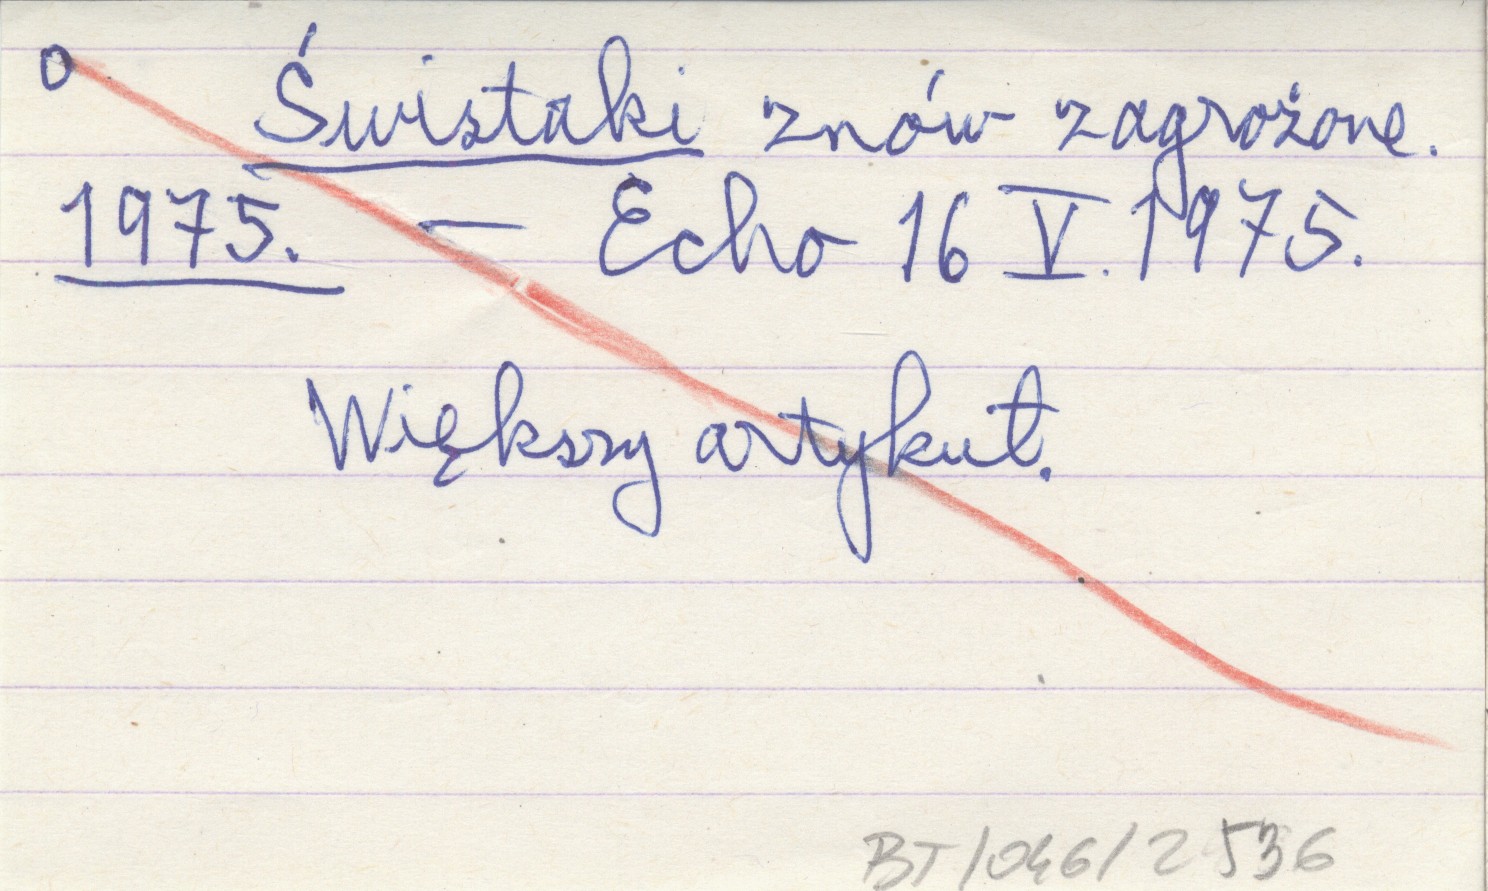 o Świstaki znów zagrożone.
1975. — Echo 16 V. 1975.
Większy artykuł.
BT/046/2536